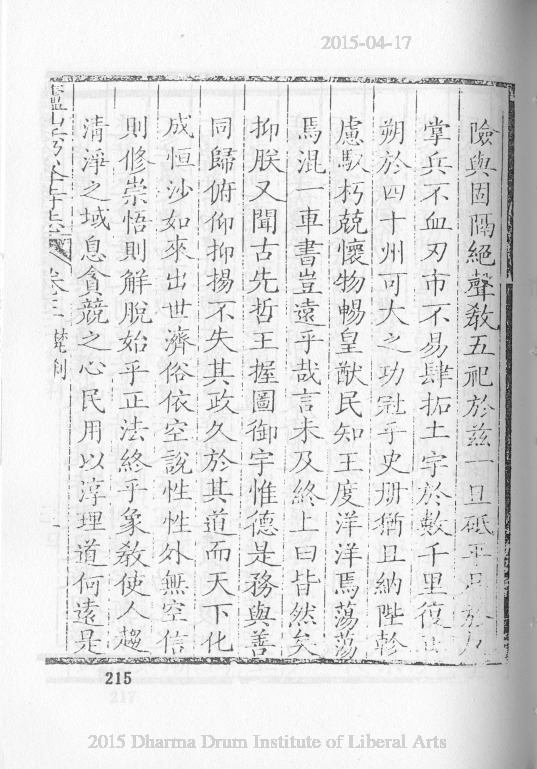 2015-04-17
險與固隔絕聲教五祀於茲一旦砥平
掌兵不血刃市不易肆拓土宇於數千里復
朔於四十州可大之功冠乎史册猶且納陛
慮馭朽兢懷物暢皇猷民知王度洋洋焉蕩蕩
焉混一車書豈遠乎哉言未及終上曰皆然矣
抑朕又聞古先哲王握圖御宇惟德是務與善
同歸俯仰抑揚不失其政久於其道而天下化
成恒沙如來出世濟俗依空說性性外無空信
則修崇悟則解脫始乎正法終乎象教使人趨
清淨之域息貪競之心民用以淳理道何遠是
卷三 梵刹
215
217
2015 Dharma Drum Institute of Liberal Arts